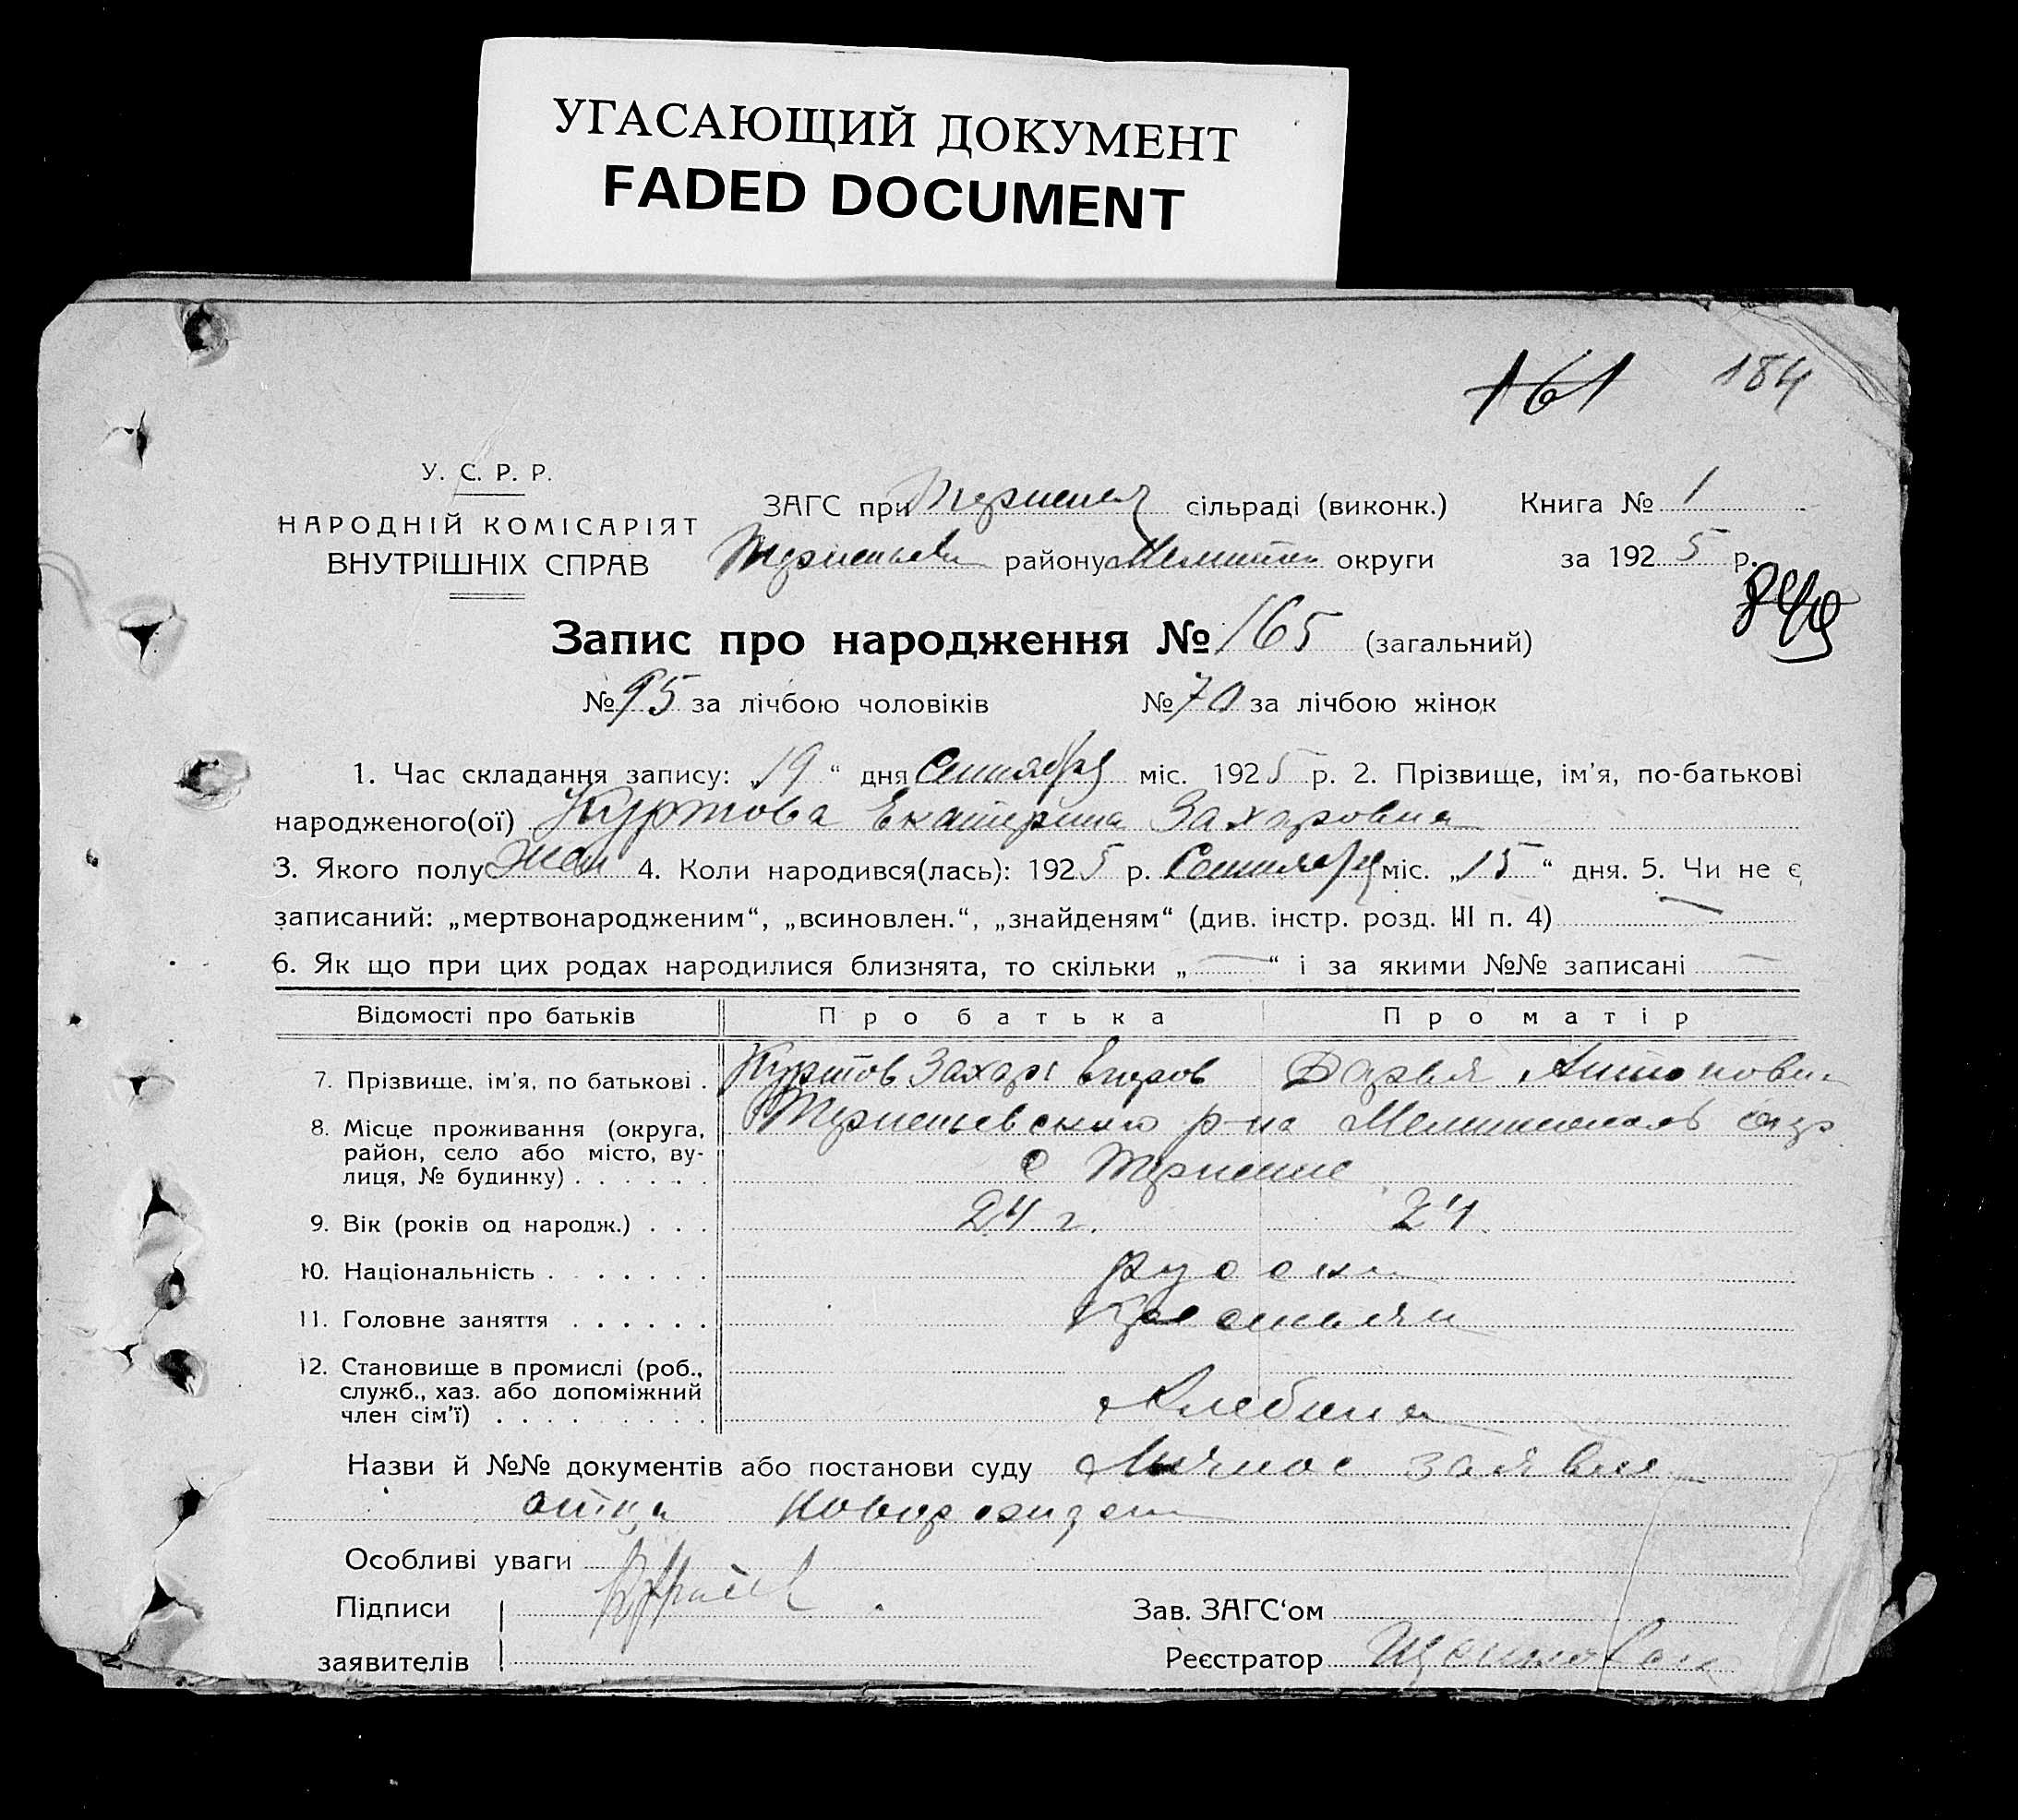 УГАСАЮЩИЙ ДОКУМЕНТ
FADED DOCUMENT
161 184
У. С. Р. Р.
НАРОДНІЙ КОМІСАРІЯТ
ВНУТРІШНІХ СПРАВ
ЗАГС при сільраді (виконк.) Книга № 1
району округи за 1925 р.
Запис про народження № 165 (загальний)
№ 95 за лічбою чоловіків № 70 за лічбою жінок
1. Час складання запису: „19“ дня Сентября міс. 1925 р. 2. Прізвище, ім'я, по-батькові
народженого(ої) Куртова Екатерина Захаровна
3. Якого полу жен 4. Коли народився(лась): 1925 р. Сентября міс. „15“ дня. 5. Чи не є
записаний: „мертвонародженим“, „всиновлен.“, „знайденям“ (див. інстр. розд. III п. 4) —
6. Як що при цих родах народилися близнята, то скільки „—“ і за якими №№ записані —
Відомості про батьків Про батька Про матір
7. Прізвище, ім'я, по батькові . Куртов Захар Егоров Дарья Антоновна
8. Місце проживання (округа,
район, село або місто, ву-
лиця, № будинку) . . . . . . р-на
с
9. Вік (років од народж.) . . . 24 г. 24
10. Національність . . . . . . . русски
11. Головне заняття . . . . . . Крестьян
12. Становище в промислі (роб.,
служб., хаз. або допоміжний
член сім'ї) . . . . . . . . .
Назви й №№ документів або постанови суду Личное заявлен
отца новорожден
Особливі уваги
Підписи
заявителів
Зав. ЗАГС‘ом
Реєстратор